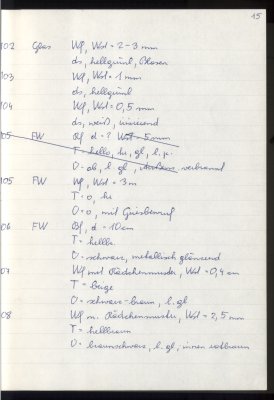 15
102 Glas Wf, Wst = 2-3 mm
ds, hellgrünl, Blasen
103 Wf, Wst = 1 mm
ds, hellgrünl
104 Wf, Wst = 0,5 mm
ds, weiß, irisierend
105 FW Bf d = ? Wst = 5 mm
T = hellb, hr, gl, l. p.
O = ob, l. gl, verbrannt
105 FW Wf, Wst = 3 m
T = o, hr
O = o, mit Griesbewurf
06 FW Bf, d = 10 cm
T = hellbr.
O = schwarz, metallisch glänzend
07 Wf mit Rädchenmuster, Wst = 0,4 cm
T = beige
O = schwarz-braun, l. gl
08 Wf m. Rädchenmuster, Wst = 2,5 mm
T = hellbraun
O = braunschwarz, l. gl, innen rotbraun